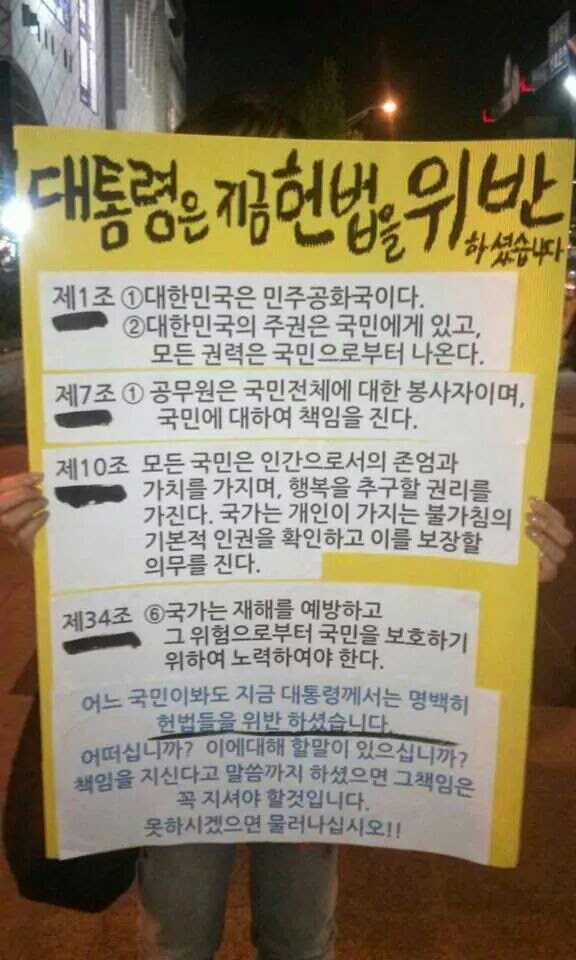 대통령은 지금 헌법을 위반
하셨습니다
제1조 ①대한민국은 민주공화국이다.
②대한민국의 주권은 국민에게 있고,
모든 권력은 국민으로부터 나온다.
제7조 ① 공무원은 국민전체에 대한 봉사자이며,
국민에 대하여 책임을 진다.
제10조 모든 국민은 인간으로서의 존엄과
가치를 가지며, 행복을 추구할 권리를
가진다. 국가는 개인이 가지는 불가침의
기본적 인권을 확인하고 이를 보장할
의무를 진다.
제34조 ⑥국가는 재해를 예방하고
그 위험으로부터 국민을 보호하기
위하여 노력하여야 한다.
어느 국민이봐도 지금 대통령께서는 명백히
헌법들을 위반 하셨습니다.
어떠십니까? 이에대해 할말이 있으십니까?
책임을 지신다고 말씀까지 하셨으면 그책임은
꼭 지셔야 할것입니다.
못하시겠으면 물러나십시오!!